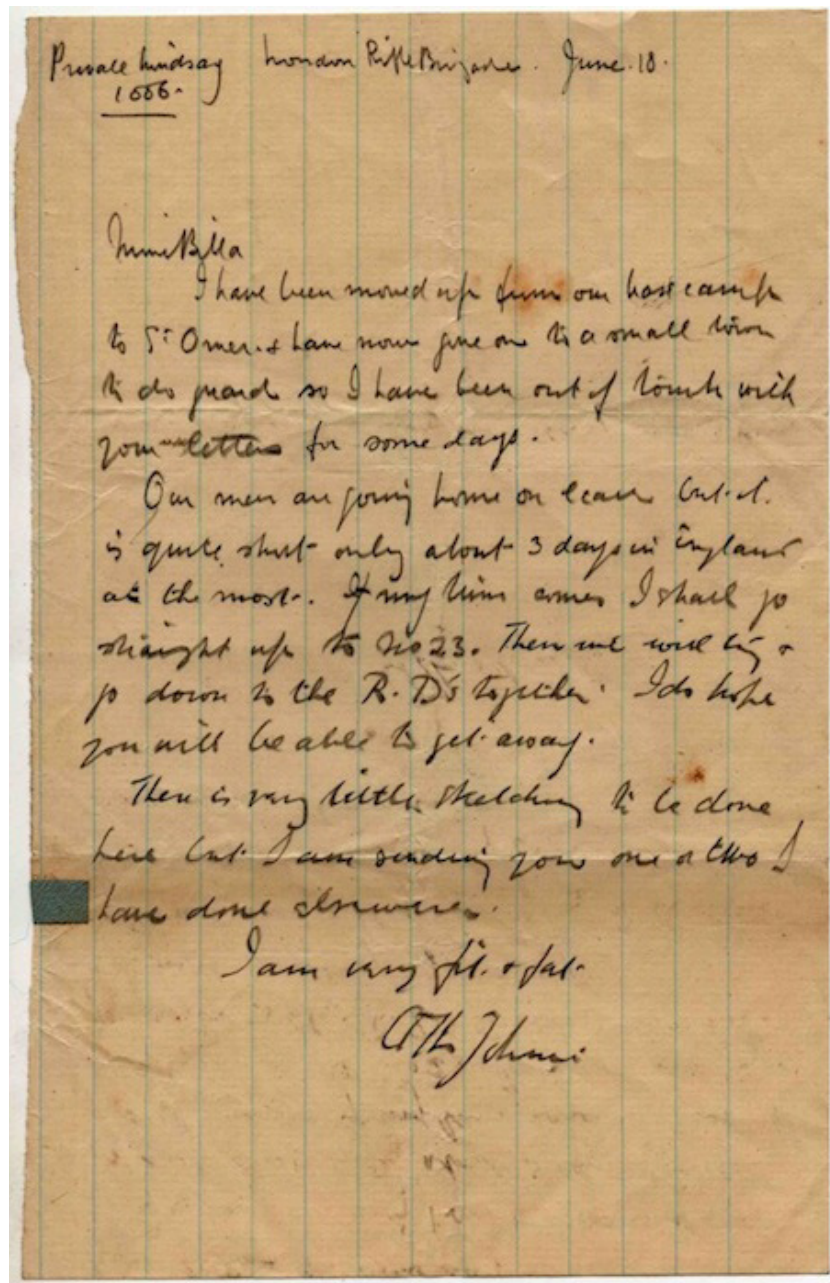 Private Lindsay London Rifle Brigade. June. 18.
1006.
I have been moved up from our base camp
to St Omer. & have now gone on to a small town
to do guard so I have been out of touch with
your letters for some days.
Our men are going home on leave but it
is quite short only about 3 days in England
at the most. If my turn comes I shall go
straight up to No 23. Then we will try &
go down to the R. D's together. I do hope
you will be able to get away.
There is very little sketching to be done
here but I am sending you one or two I
have done elsewhere.
I am very fit & fat.